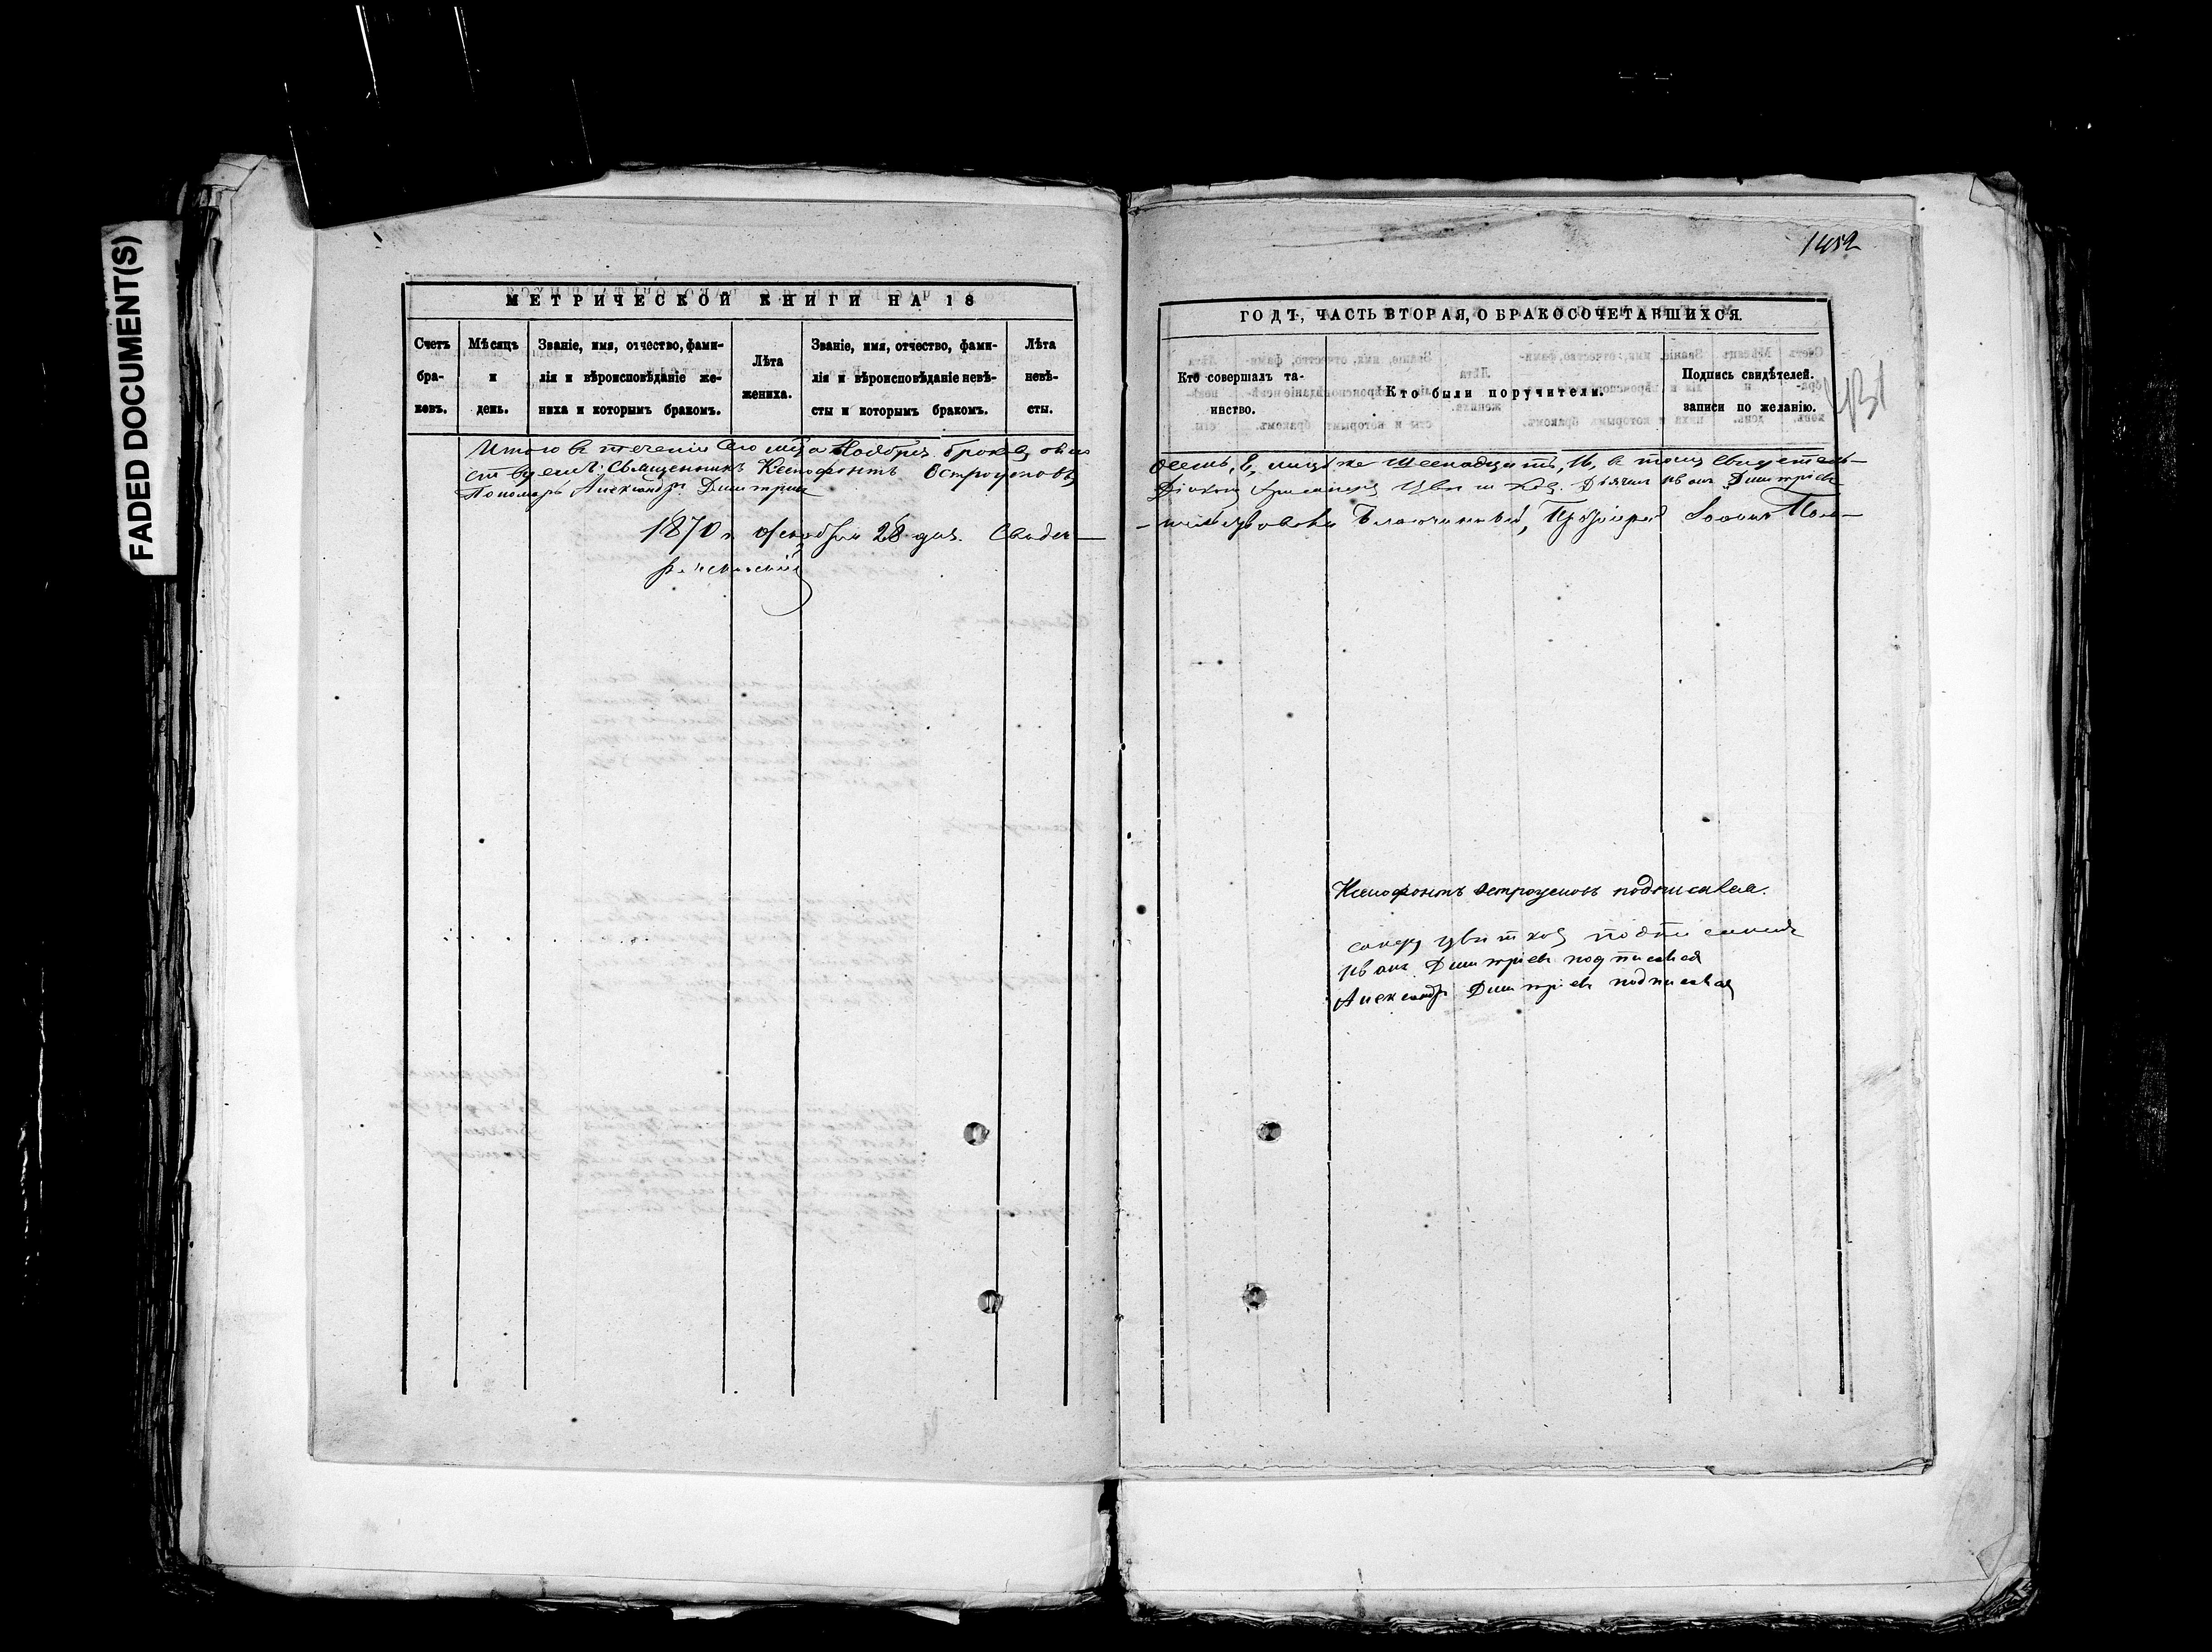 FADED DOCUMENT(S)
МЕТРИЧЕСКОЙ КНИГИ НА 18
Счетъ бра- ковъ.
Мѣсяцъ и день.
Званіе, имя, отчество, фами-
лія и вѣроисповѣданіе же-
ниха и которымъ бракомъ.
Лѣта
жениха.
Званіе, имя, отчество, фами-
лія и вѣроисповѣданіе невѣ-
сты и которымъ бракомъ.
Лѣта
невѣ-
сты.
Итого въ теченіи сего м-ца Ноября браковъ
Священникъ Ксенофонтъ Остроумовъ
Пономарь Александръ Димитріев
1870 г. 28 дня.
1452
ГОДЪ, ЧАСТЬ ВТОРАЯ, О БРАКОСОЧЕТАВШИХСЯ.
Кто совершалъ та-
инство.
Кто были поручители.
Подпись свидѣтелей.
записи по желанію.
осемь, 8, лицъ же шеснадцать, 16, въ томъ свидетель-
Діаконъ Цвѣтковъ Дьячекъ Иванъ Димитріевъ
Благочинный, Іоаннъ
Ксенофонтъ Остроумовъ подписался.
Цвѣтковъ подписался
Иванъ Димитріевъ подписался
Александръ Димитріевъ подписался